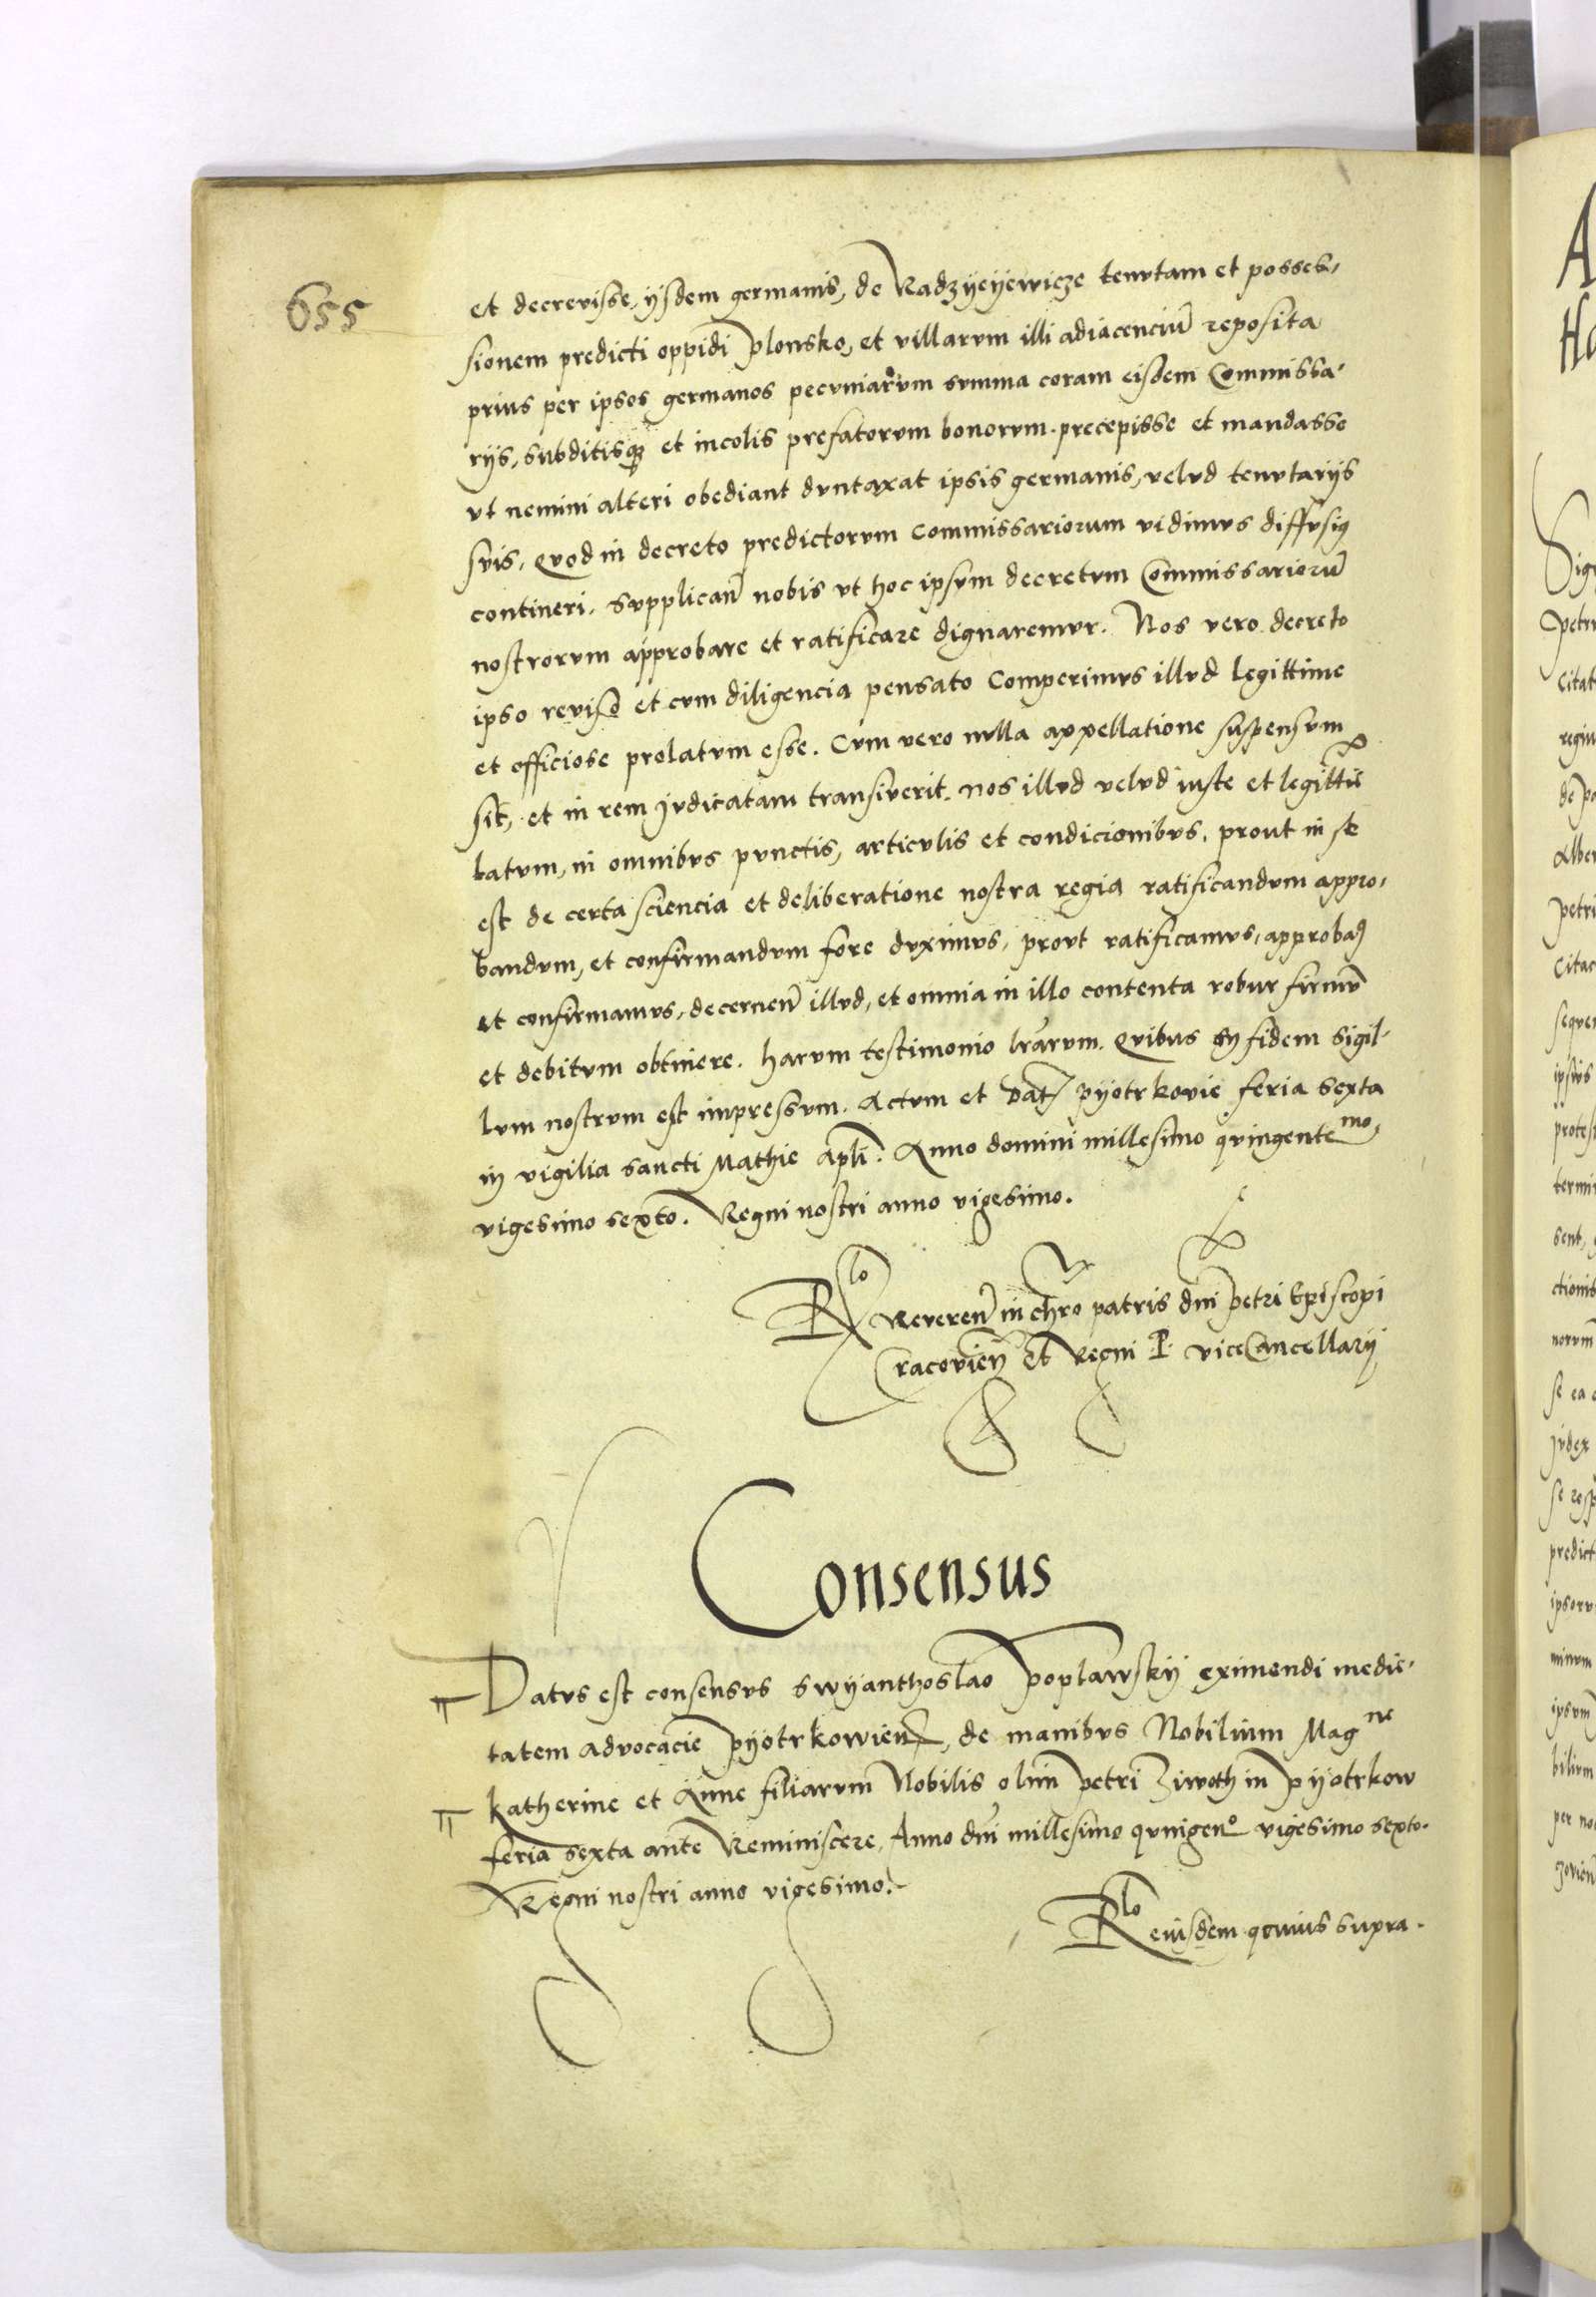 655
et decrevisse, ijsdem germanis, de Radzyeyewicze tenvtam et posses,
sionem predicti oppidi plonsko, et villarvm illi adiacenciu͂ reposita
privs per ipsos germanos pecvniarvm svmma coram eisdem Commissa,
rijs, subditisqȝ et incolis prefatorvm bonorvm. precepisse et mandasse
vt nemini alteri obediant dvntaxat ipsis germanis, velvd tenvtarijs
svis, qvod in decreto predictorvm Commissariorum vidimvs diffvsiꝰ
contineri. svpplican͂ nobis vt hoc ipsvm decretvm Commissarioru͂
nostrorvm approbare et ratificare dignaremvr. Nos vero decreto
ipso reviso et cvm diligencia pensato Comperimvs illvd legittime
et officiose prolatvm esse. Cvm vero nvlla appellatione suspensvm
sit, et in rem jvdicatam transiverit. nos illvd velvd iuste et legittie͂
latvm, in omnibvs pvnctis, articvlis et condicionibvs, prout in se
est de certa sciencia et deliberatione nostra regia ratificandvm appro,
bandvm, et confirmandvm fore dvximvs, provt ratificamvs, approbaꝯ
et confirmamvs, decernen͂ illvd, et omnia in illo contenta robur firmu͂
et debitvm obtinere. harvm testimonio lr͂arvm. qvibus in fidem sigil-
lvm nostrvm est impressvm. Actvm et Datꝭ pyotrkovie feria sexta
in vigilia sancti Mathie apl͂i. Anno domini millesimo qvingentemo,
vigesimo sexto. Regni nostri anno vigesimo.
Rlo Reveren͂ in chr͂o patris dn͂i petri Episcopi
Cracovien͂ et Regni P. viceCancellarij
Consensus
Datvs est consensvs swyanthoslao poplawskij eximendi medie-
tatem advocacie pyotrkowien͂, de manibvs Nobilium Magne
katherine et Anne filiarvm Nobilis olim petri Ziwoth in pyotrkow
feria sexta ante Reminiscere, Anno dn͂i millesimo qvingen͂o vigesimo sexto.
Regni nostri anno vigesimo.
Rlo eiusdem qvuius supra.